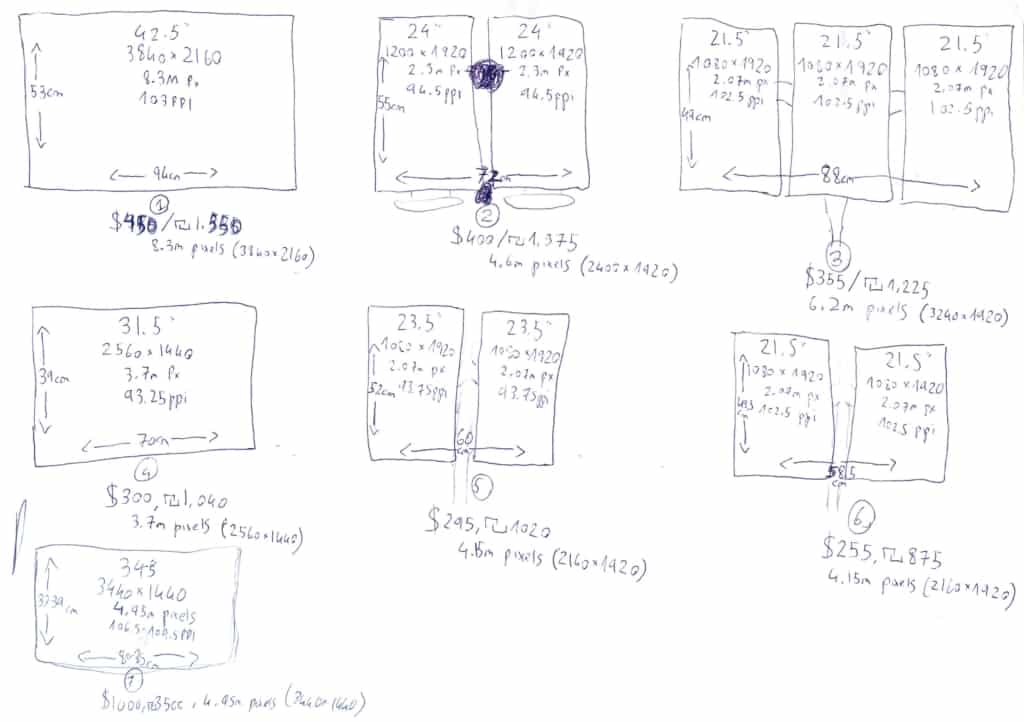 42.5"
3840 x 2160
8.3M Px
103 PPI
53cm
94cm
1
$450/₪1.550
8.3m pixels (3840x2160)
24"
1200 x 1920
2.3m Px
94.5ppi
55cm
24"
1200 x 1920
2.3m Px
94.5ppi
72cm
2
$400/₪1,375
4.6m pixels (2400x1920)
21.5"
1080 x 1920
2.07m px
102.5ppi
49cm
21.5"
1080 x 1920
2.07m px
102.5ppi
21.5"
1080 x 1920
2.07m px
102.5ppi
88cm
3
$355/₪1,225
6.2m pixels (3240x1920)
31.5"
2560 x 1440
3.7m Px
93.25ppi
39cm
70cm
4
$300, ₪1,040
3.7m pixels (2560x1440)
23.5"
1080 x 1920
2.07m px
93.75ppi
52cm
23.5"
1080 x 1920
2.07m px
93.75ppi
60
cm
5
$295, ₪1020
4.15m pixels (2160x1920)
21.5"
1080 x 1920
2.07m px
102.5 ppi
cm
21.5"
1080 x 1920
2.07m px
102.5 ppi
58.5
cm
6
$255, ₪875
4.15m pixels (2160x1920)
3440x1440
4.95m pixels
cm
7
$1000, ₪3500, 4.95m pixels (3440x1440)